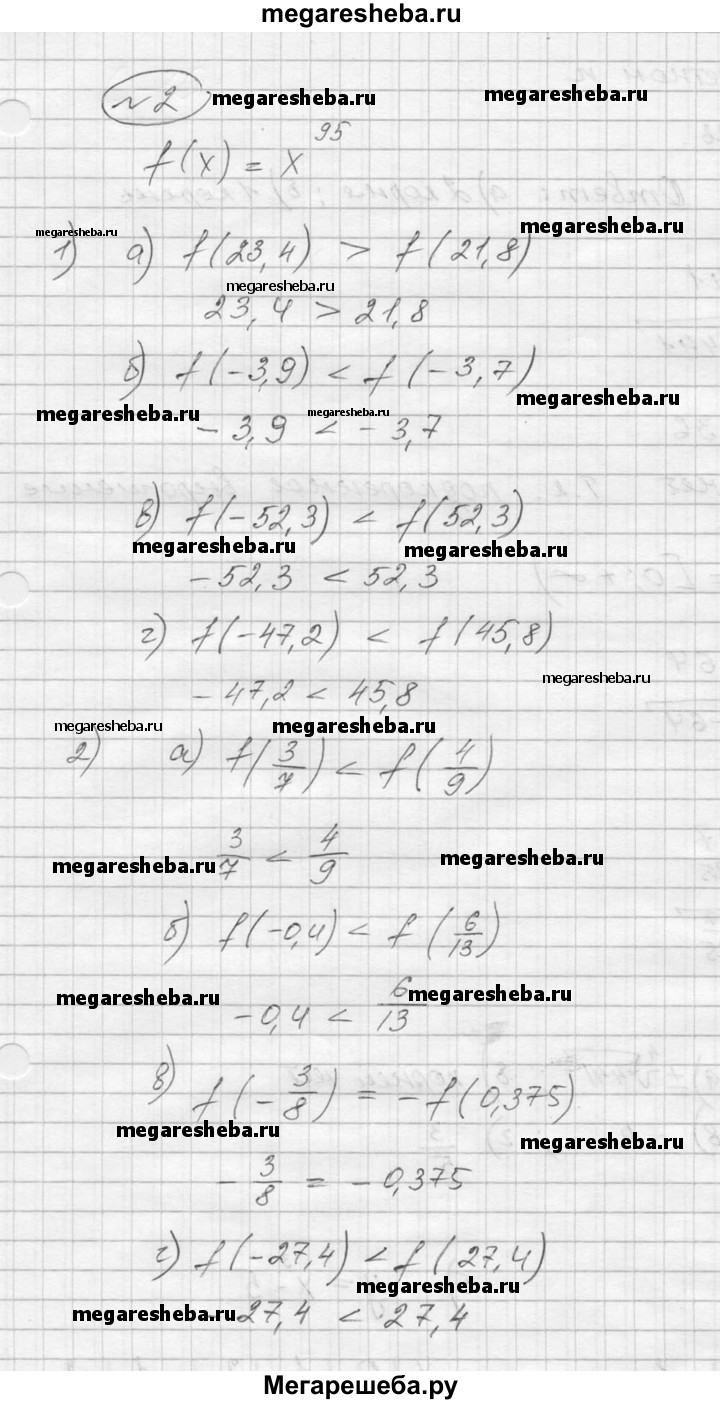 megaresheba.ru
№2 megaresheba.ru megaresheba.ru
f(x) = x^95
megaresheba.ru
megaresheba.ru
1) а) f(23,4) > f(21,8)
megaresheba.ru
23,4 > 21,8
б) f(-3,9) < f(-3,7)
megaresheba.ru
megaresheba.ru megaresheba.ru
-3,9 < -3,7
в) f(-52,3) < f(52,3)
megaresheba.ru megaresheba.ru
-52,3 < 52,3
г) f(-47,2) < f(45,8)
megaresheba.ru
-47,2 < 45,8
megaresheba.ru megaresheba.ru
2) а) f(3/7) < f(4/9)
3/7 < 4/9
megaresheba.ru megaresheba.ru
б) f(-0,4) < f(6/13)
megaresheba.ru megaresheba.ru
-0,4 < 6/13
в) f(-3/8) = -f(0,375)
megaresheba.ru megaresheba.ru
-3/8 = -0,375
г) f(-27,4) < f(27,4)
megaresheba.ru
megaresheba.ru
27,4 < 27,4
Мегарешеба.ру